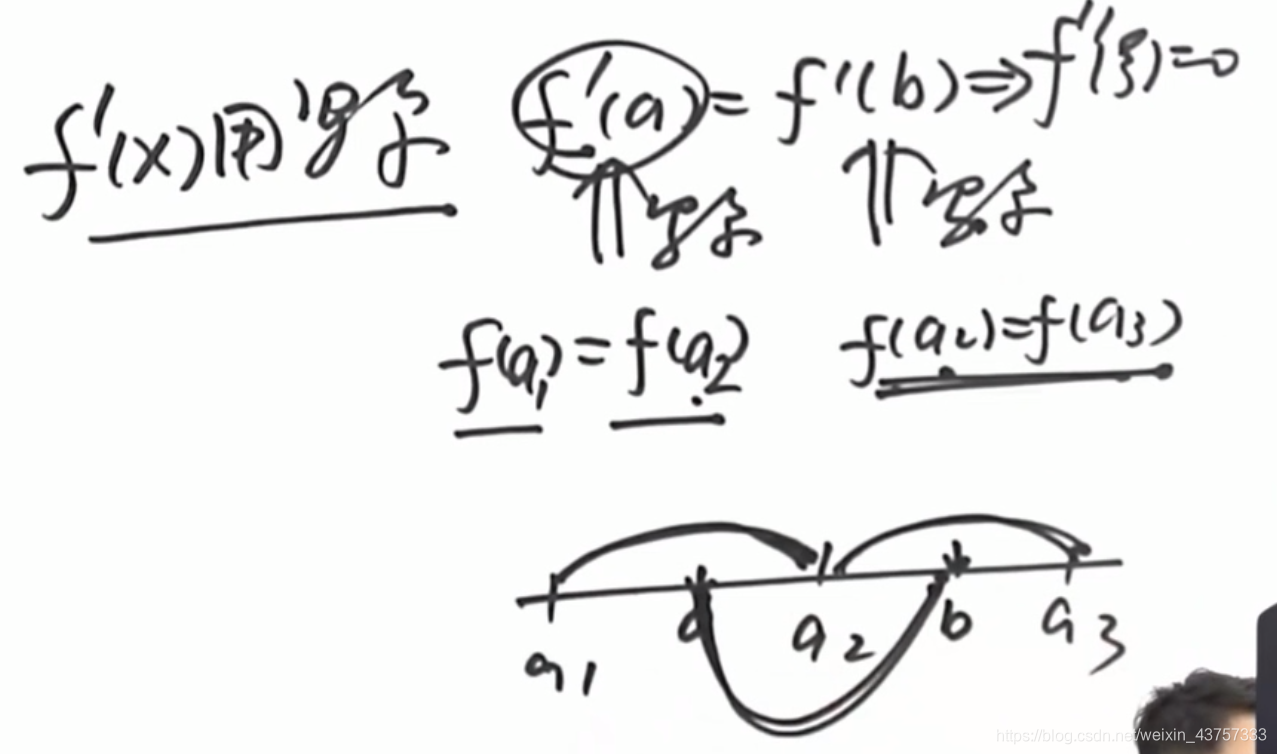 f'(x)用罗尔 f'(a) = f'(b) ⇒ f''(ξ)=0
⇑罗尔 ⇑罗尔
f(a₁) = f(a₂) f(a₂)=f(a₃)
a₁ a a₂ b a₃
https://blog.csdn.net/weixin_43757333